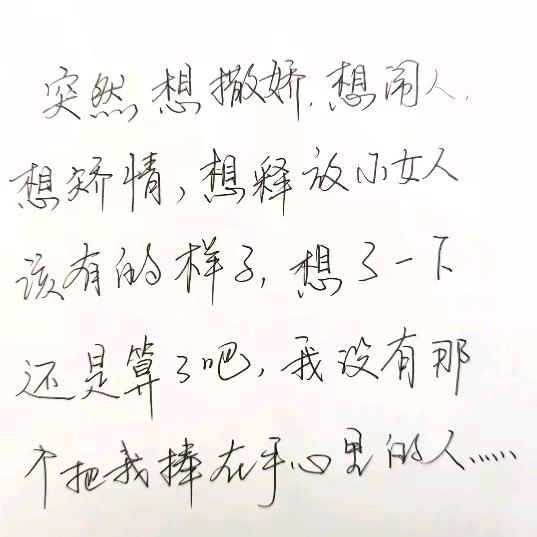 突然想撒娇.想闹人.
想矫情，想释放小女人
该有的样子，想了一下
还是算了吧，我没有那
个把我捧在手心里的人……